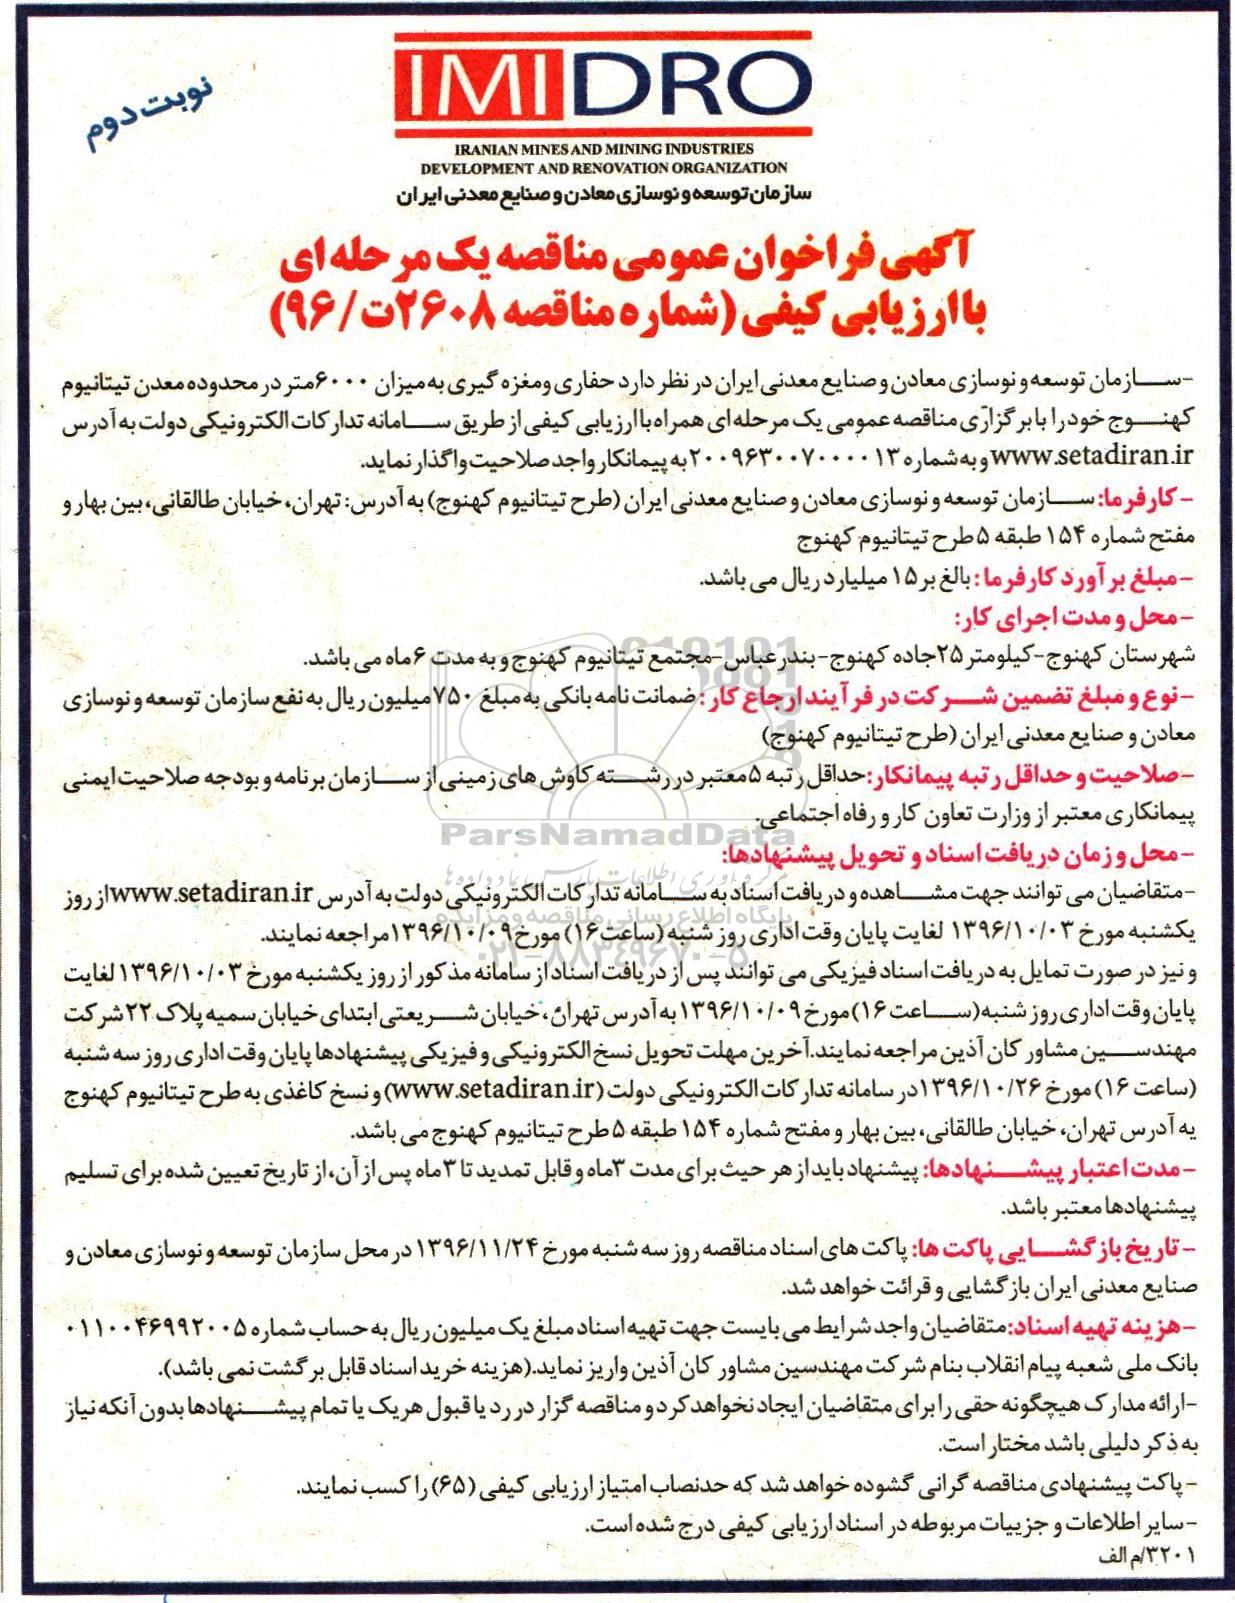 نوبت دوم
IMIDRO
IRANIAN MINES AND MINING INDUSTRIES
DEVELOPMENT AND RENOVATION ORGANIZATION
سازمان توسعه و نوسازی معادن و صنایع معدنی ایران
آگهی فراخوان عمومی مناقصه یک مرحله ای
با ارزیابی کیفی (شماره مناقصه ۲۶۰۸ت/۹۶)
-سازمان توسعه و نوسازی معادن و صنایع معدنی ایران در نظر دارد حفاری و مغزه گیری به میزان ۶۰۰۰متر در محدوده معدن تیتانیوم
کهنوج خود را با برگزاری مناقصه عمومی یک مرحله ای همراه با ارزیابی کیفی از طریق سامانه تدارکات الکترونیکی دولت به آدرس
www.setadiran.ir و به شماره ۲۰۰۹۶۳۰۰۷۰۰۰۰۱۳ به پیمانکار واجد صلاحیت واگذار نماید.
- کارفرما: سازمان توسعه و نوسازی معادن و صنایع معدنی ایران (طرح تیتانیوم کهنوج) به آدرس: تهران، خیابان طالقانی، بین بهار و
مفتح شماره ۱۵۴ طبقه ۵ طرح تیتانیوم کهنوج
-مبلغ برآورد کارفرما: بالغ بر ۱۵ میلیارد ریال می باشد.
-محل و مدت اجرای کار:
شهرستان کهنوج-کیلومتر ۲۵جاده کهنوج-بندرعباس-مجتمع تیتانیوم کهنوج و به مدت ۶ماه می باشد.
-نوع و مبلغ تضمین شرکت در فرآیند ارجاع کار: ضمانت نامه بانکی به مبلغ ۷۵۰میلیون ریال به نفع سازمان توسعه و نوسازی
معادن و صنایع معدنی ایران (طرح تیتانیوم کهنوج)
-صلاحیت و حداقل رتبه پیمانکار: حداقل رتبه ۵ معتبر در رشته کاوش های زمینی از سازمان برنامه و بودجه صلاحیت ایمنی
پیمانکاری معتبر از وزارت تعاون کار و رفاه اجتماعی.
ParsNamadData
-محل و زمان دریافت اسناد و تحویل پیشنهادها:
مرکز فرآوری اطلاعات پارس نماد داده ها
-متقاضیان می توانند جهت مشاهده و دریافت اسناد به سامانه تدارکات الکترونیکی دولت به آدرس www.setadiran.ir از روز
پایگاه اطلاع رسانی مناقصه و مزایده
یکشنبه مورخ ۱۳۹۶/۱۰/۰۳ لغایت پایان وقت اداری روز شنبه (ساعت ۱۶) مورخ ۱۳۹۶/۱۰/۰۹ مراجعه نمایند.
۰۲۱-۸۸۳۴۹۶۷۰-۵
و نیز در صورت تمایل به دریافت اسناد فیزیکی می توانند پس از دریافت اسناد از سامانه مذکور از روز یکشنبه مورخ ۱۳۹۶/۱۰/۰۳ لغایت
پایان وقت اداری روز شنبه (ساعت ۱۶) مورخ ۱۳۹۶/۱۰/۰۹ به آدرس تهران، خیابان شریعتی ابتدای خیابان سمیه پلاک ۲۲ شرکت
مهندسین مشاور کان آذین مراجعه نمایند. آخرین مهلت تحویل نسخ الکترونیکی و فیزیکی پیشنهادها پایان وقت اداری روز سه شنبه
(ساعت ۱۶) مورخ ۱۳۹۶/۱۰/۲۶ در سامانه تدارکات الکترونیکی دولت (www.setadiran.ir) و نسخ کاغذی به طرح تیتانیوم کهنوج
یه آدرس تهران، خیابان طالقانی، بین بهار و مفتح شماره ۱۵۴ طبقه ۵ طرح تیتانیوم کهنوج می باشد.
-مدت اعتبار پیشنهادها: پیشنهاد باید از هر حیث برای مدت ۳ماه و قابل تمدید تا ۳ماه پس از آن، از تاریخ تعیین شده برای تسلیم
پیشنهادها معتبر باشد.
-تاریخ بازگشایی پاکت ها: پاکت های اسناد مناقصه روز سه شنبه مورخ ۱۳۹۶/۱۱/۲۴ در محل سازمان توسعه و نوسازی معادن و
صنایع معدنی ایران بازگشایی و قرائت خواهد شد.
-هزینه تهیه اسناد: متقاضیان واجد شرایط می بایست جهت تهیه اسناد مبلغ یک میلیون ریال به حساب شماره ۰۱۱۰۰۴۶۹۹۲۰۰۵
بانک ملی شعبه پیام انقلاب بنام شرکت مهندسین مشاور کان آذین واریز نماید.(هزینه خرید اسناد قابل برگشت نمی باشد).
-ارائه مدارک هیچگونه حقی را برای متقاضیان ایجاد نخواهد کرد و مناقصه گزار در رد یا قبول هریک یا تمام پیشنهادها بدون آنکه نیاز
به ذکر دلیلی باشد مختار است.
-پاکت پیشنهادی مناقصه گرانی گشوده خواهد شد که حدنصاب امتیاز ارزیابی کیفی (۶۵) را کسب نمایند.
-سایر اطلاعات و جزییات مربوطه در اسناد ارزیابی کیفی درج شده است.
۳۲۰۱/م الف